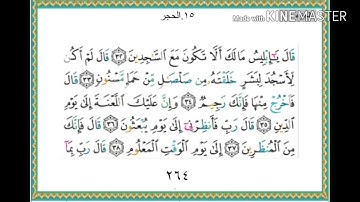 ١٥.الحجر
Made with KINEMASTER
قَالَ يَٰٓإِبْلِيسُ مَالَكَ أَلَّا تَكُونَ مَعَ ٱلسَّٰجِدِينَ ٣٢ قَالَ لَمْ أَكُن
لِّأَسْجُدَ لِبَشَرٍ خَلَقْتَهُۥ مِن صَلْصَٰلٍ مِّنْ حَمَإٍ مَّسْنُونٍ ٣٣ قَالَ
فَٱخْرُجْ مِنْهَا فَإِنَّكَ رَجِيمٌ ٣٤ وَإِنَّ عَلَيْكَ ٱللَّعْنَةَ إِلَىٰ يَوْمِ
ٱلدِّينِ ٣٥ قَالَ رَبِّ فَأَنظِرْنِىٓ إِلَىٰ يَوْمِ يُبْعَثُونَ ٣٦ قَالَ فَإِنَّكَ
مِنَ ٱلْمُنظَرِينَ ٣٧ إِلَىٰ يَوْمِ ٱلْوَقْتِ ٱلْمَعْلُومِ ٣٨ قَالَ رَبِّ بِمَآ
٢٦٤